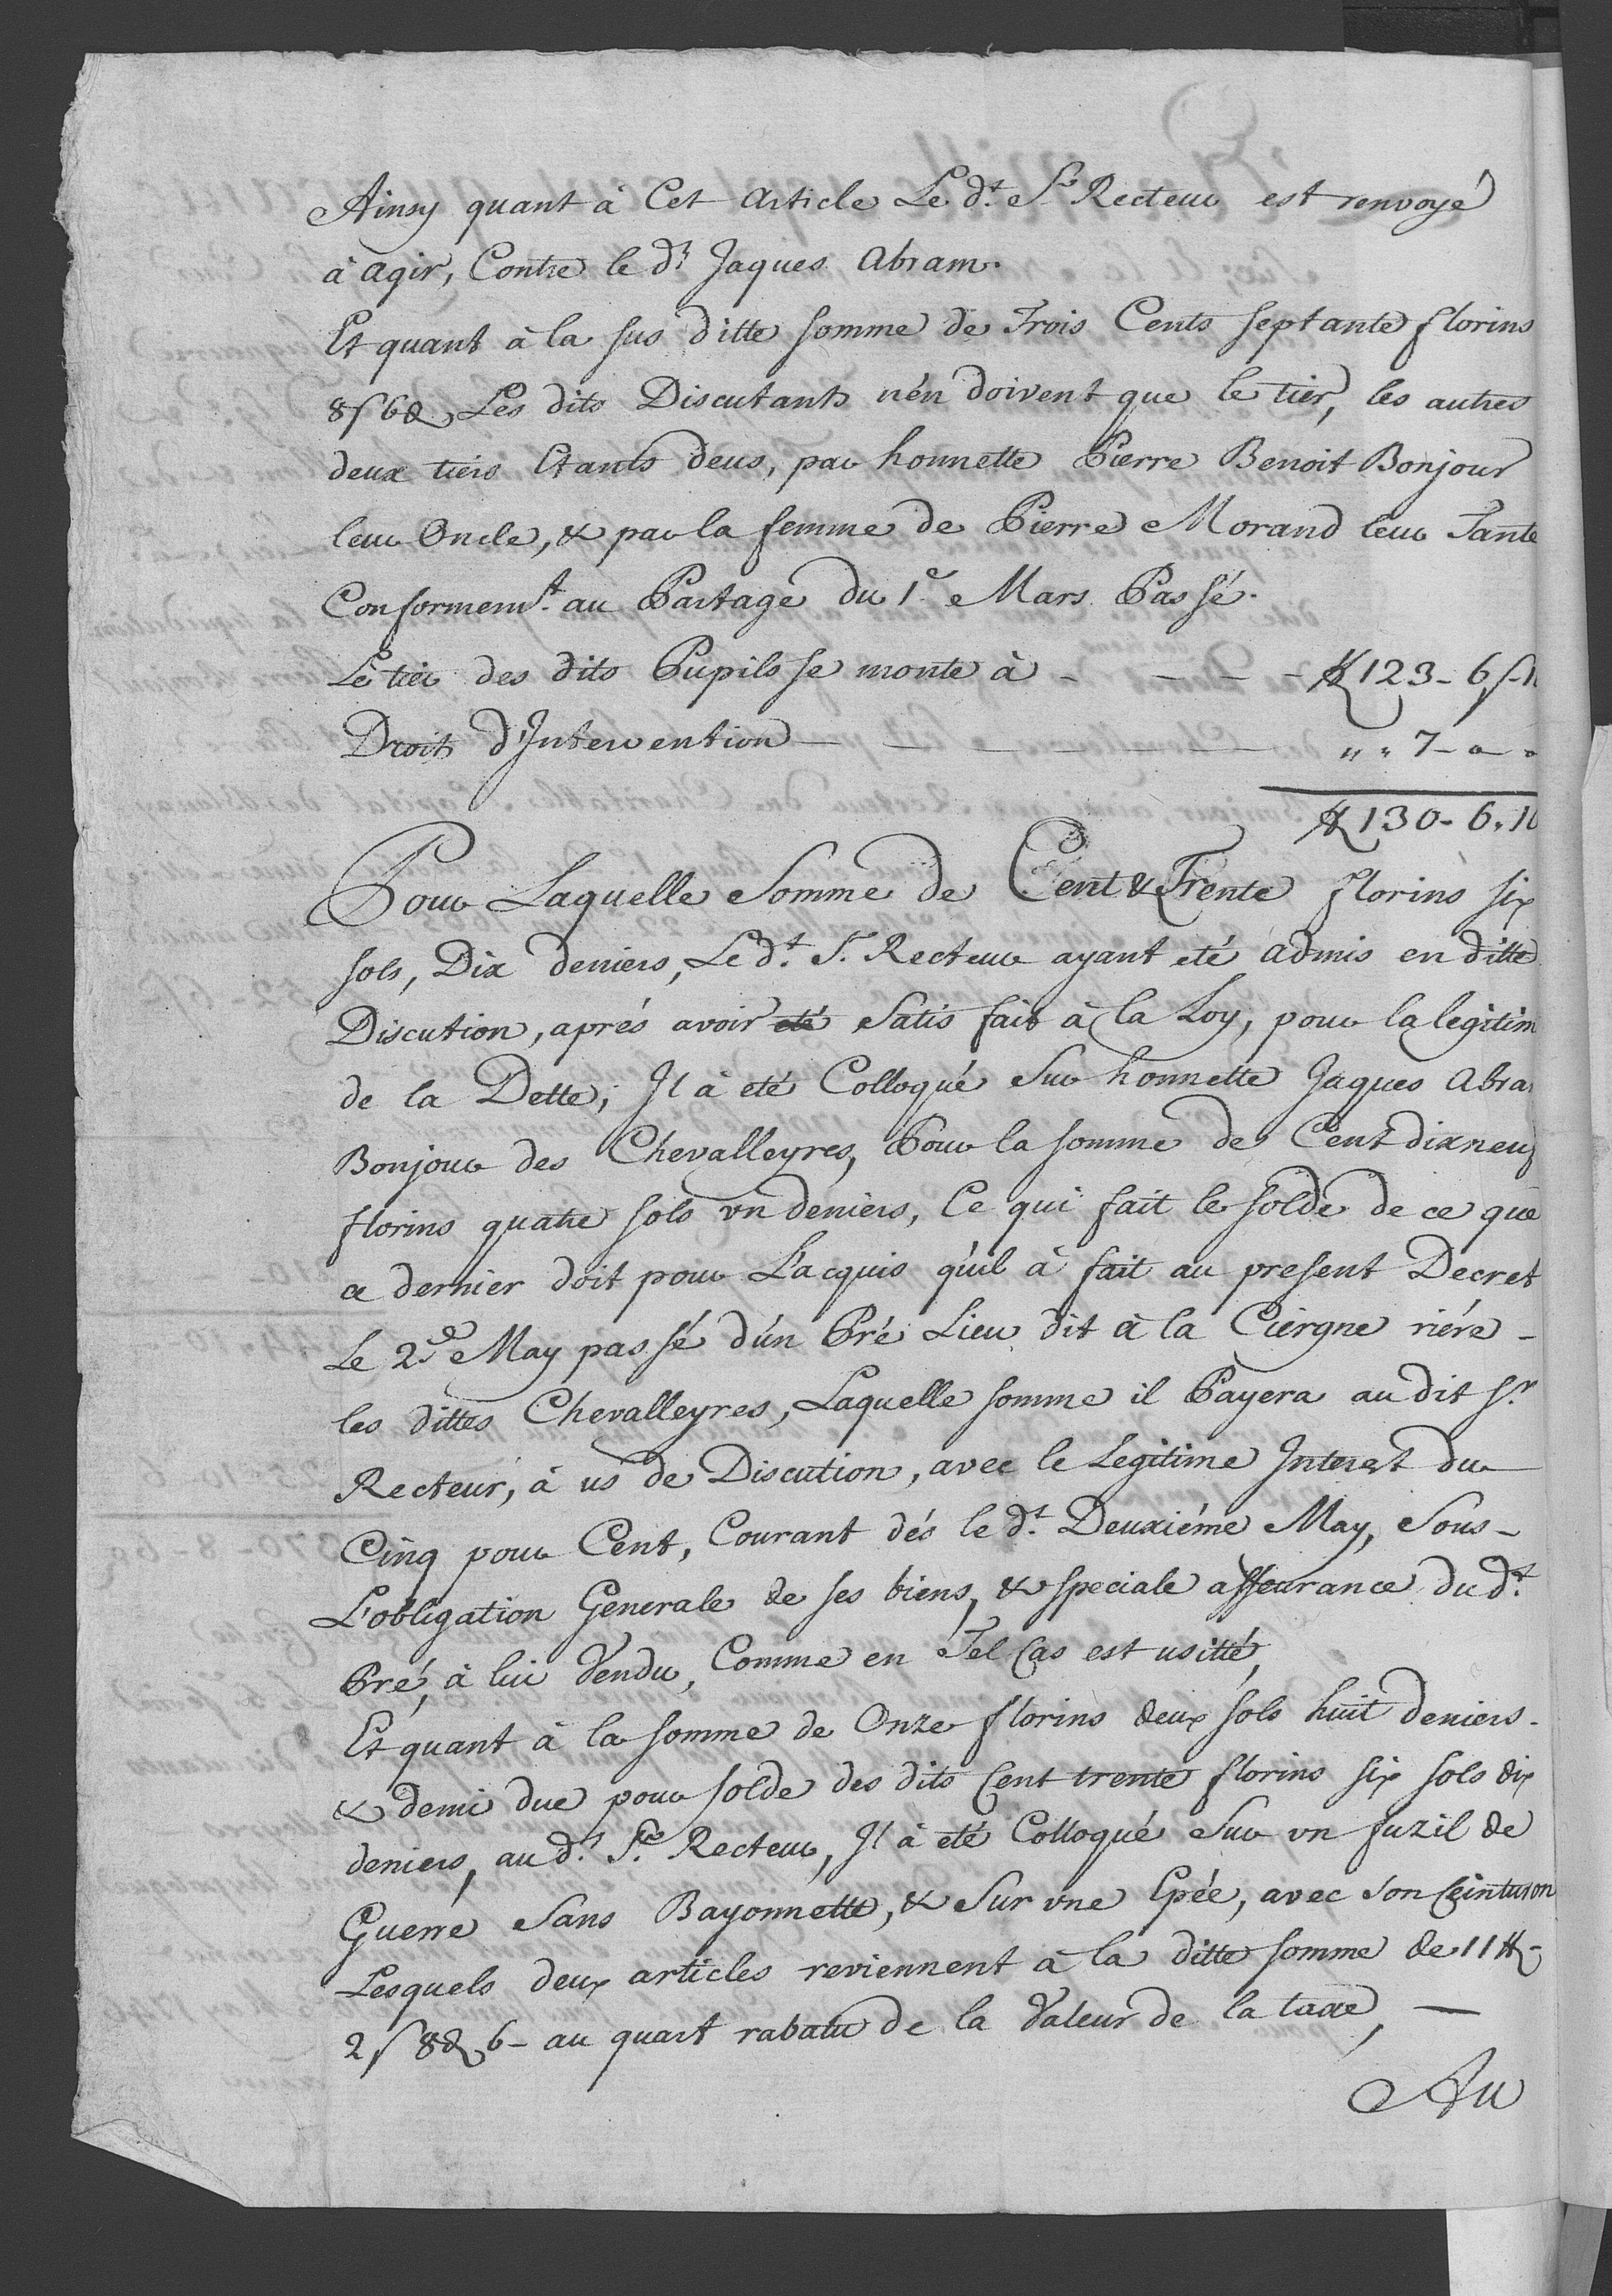 Ainsy quant à Cet article Le d.t S.r Recteur est renvoyé
à agir, Contre le d.t Jaques Abram.
Et quant à la sus ditte somme de Trois Cents septante florins
8 s 6 d, Les dits Discutants n'en doivent que le tier, les autres
deux tiers Etants deus, par honnette Pierre Benoit Bonjour
leur Oncle, & par la femme de Pierre Morand leur Tante
Conformem.t au Partage du 1.e Mars Passé.
Le tier des dits Pupils se monte à - - - - ff 123 - 6 s - 10
Droit d'Intervention — — — — — " " 7 - " - "
ff 130 - 6 . 10
Pour Laquelle Somme de Cent & Trente florins six
sols, Dix deniers, Le d.t S.r Recteur ayant eté admis en ditte
Discution, aprés avoir eté Satis fait à la Loy, pour la legitim
de la Dette; Il à eté Colloqué Sur honnette Jaques Abra
Bonjour des Chevalleyres, Pour la somme de Cent dixneuf
florins quatre sols un deniers, Ce qui fait le solde de ce que
ce dernier doit pour L'acquis qu'il à fait au present Decret
Le 2.e May passé d'un Pré Lieu dit à la Ciergne riére -
les dittes Chevalleyres, Laquelle somme il Payera au dit S.r
Recteur, à us de Discution, avec le Legitime Interest du
Cinq pour Cent, Courant dés le d.t Deuxiéme May, Sous -
L'obligation Generale de ses biens, & speciale asseurance du d.t
Pré, à lui Vendu, Comme en Tel Cas est usitté,
Et quant à la somme de Onze florins deux sols huit deniers -
& demi due pour solde des dits Cent trente florins six sols dix
deniers, au d.t S.r Recteur, Il à eté Colloqué Sur un fuzil de
Guerre Sans Bayonnette, & Sur une Epée, avec Son Ceinturon
Lesquels deux articles reviennent à la ditte somme de 11 ff -
2 s 8 d 6 - au quart rabatu de la Valeur de la taxe, —
Au